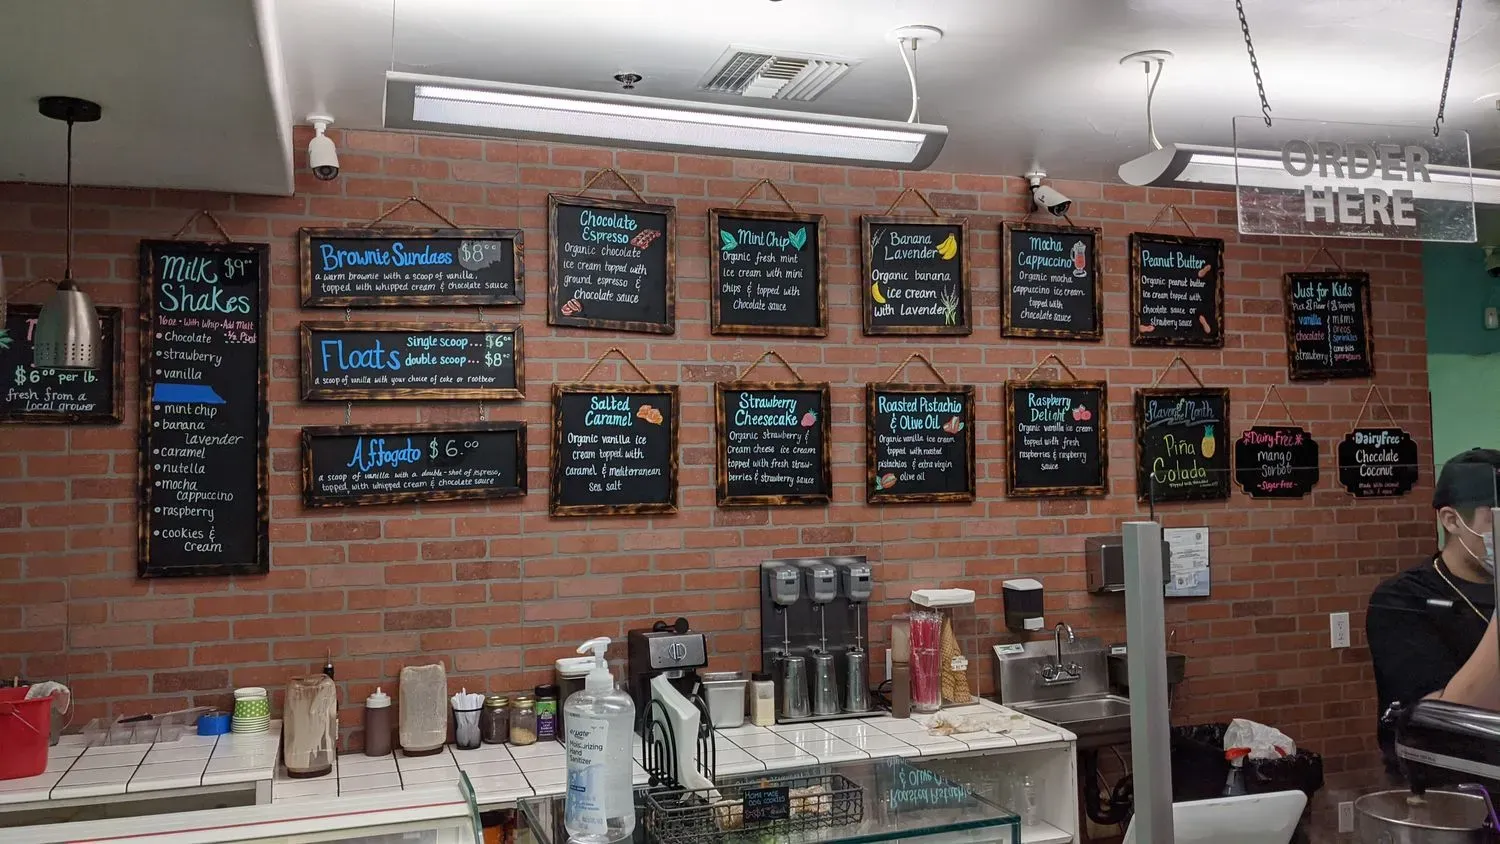 $6.00 per lb.
fresh from a
local grower
Milk $9.00
Shakes
16oz • With Whip • Add Malt
• ½ Pint
• Chocolate
• strawberry
• vanilla
• mint chip
• banana
lavender
• caramel
• nutella
• mocha
cappuccino
• raspberry
• cookies &
cream
Brownie Sundaes $8.00
a warm brownie with a scoop of vanilla,
topped with whipped cream & chocolate sauce
Floats
single scoop... $6.00
double scoop... $8.00
a scoop of vanilla with your choice of coke or rootbeer
Affogato $6.00
a scoop of vanilla with a double-shot of espresso,
topped with whipped cream & chocolate sauce
Chocolate
Espresso
Organic chocolate
ice cream topped with
ground espresso &
chocolate sauce
Mint Chip
Organic fresh mint
ice cream with mini
chips & topped with
chocolate sauce
Banana
Lavender
Organic banana
ice cream
with Lavender
Mocha
Cappuccino
Organic mocha
cappuccino ice cream
topped with
chocolate sauce
Peanut Butter
Organic peanut butter
ice cream topped with
chocolate sauce or
strawberry sauce
Salted
Caramel
Organic vanilla ice
cream topped with
caramel & mediterranean
sea salt
Strawberry
Cheesecake
Organic strawberry &
cream cheese ice cream
topped with fresh straw-
berries & strawberry sauce
Roasted Pistachio
& Olive Oil
Organic vanilla ice cream
topped with roasted
pistachios & extra virgin
olive oil
Raspberry
Delight
Organic vanilla ice cream
topped with fresh
raspberries & raspberry
sauce
Flavor of the Month
Piña
Colada
Just for Kids
Pick 1 Flavor & 1 Topping
vanilla
chocolate
strawberry
m&m's
oreos
sprinkles
gummy bears
Dairy Free
mango
sorbet
- Sugar free -
Dairy Free
Chocolate
Coconut
Made with coconut
milk
ORDER
HERE
Moisturizing
Hand
Sanitizer
HOME MADE
DOG COOKIES
Roasted Pistachio
& Olive Oil